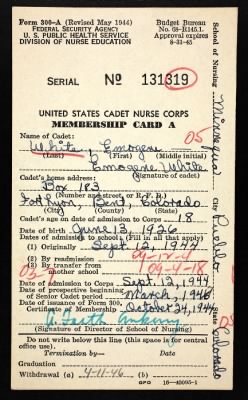 Form 300-A (Revised May 1944)
FEDERAL SECURITY AGENCY
U. S. PUBLIC HEALTH SERVICE
DIVISION OF NURSE EDUCATION
Budget Bureau
No. 68-R1145.1.
Approval expires
8-31-45
SERIAL No 131319
UNITED STATES CADET NURSE CORPS
MEMBERSHIP CARD A
Name of Cadet: 05
White, Emogene
(Last) (First) (Middle initial)
Emogene White
Cadet's home address: (Signature of cadet)
Box 183
(Number and street, or R. F. D.)
Fort Lyon, Bent, Colorado
(City) (County) (State)
Cadet's age on date of admission to Corps 18
Date of birth June 13, 1926
Date of admission to school: (Fill in all that apply)
(1) Originally Sept. 12, 1944
(2) By readmission 09-12-4
(3) By transfer from
another school 109-4-18
Date of admission to Corps Sept. 12, 1944
Date of prospective beginning
of Senior Cadet period March, 1946
Date of issuance of Form 300,
Certificate of Membership October 24, 1944
A. Faith Ankeny
(Signature of Director of School of Nursing)
Do not write below this line (this space is for central
office use).
Termination by— Date
Graduation
Withdrawal (a) 4-11-46 (b)
GPO 16-40095-1
School of Nursing Minnequa City Pueblo State Colorado